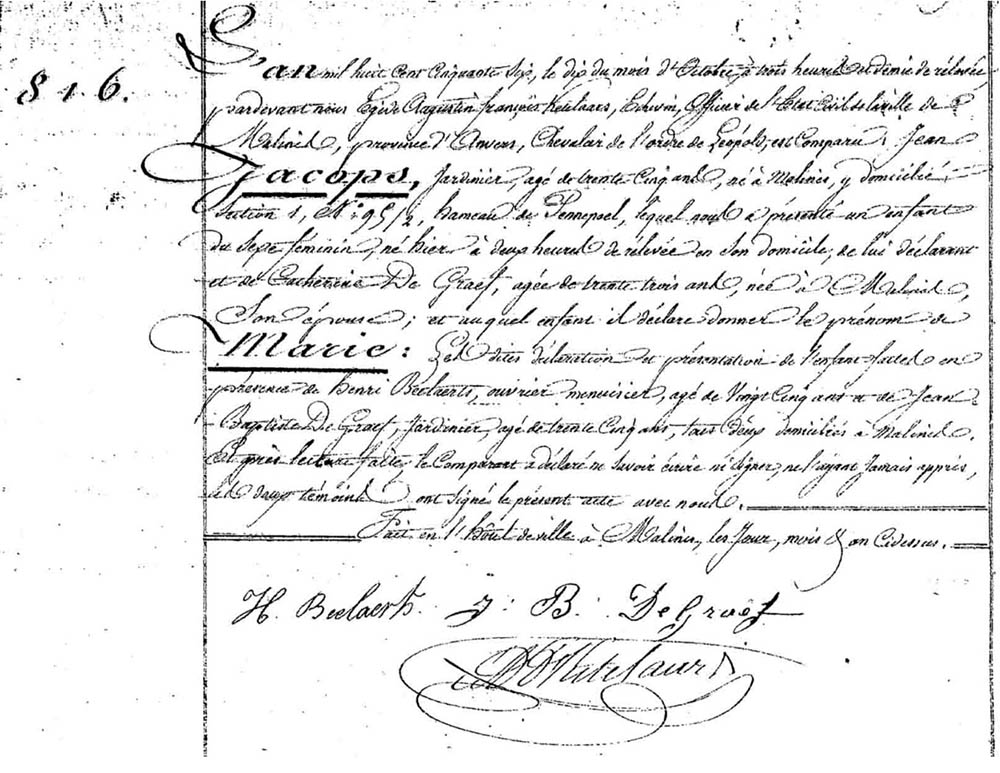 816.
L'an mil huit cent cinquante six, le dix du mois d'Octobre, à trois heures et demie de relevée
pardevant nous Egide Augustin françois Ketelaars, Echevin, Officier de l'Etat Civil de la ville de
Malines, province d'Anvers, Chevalier de l'ordre de Léopold, est Comparu : Jean
Jacops, Jardinier, agé de trente Cinq ans, né à Malines, y domicilié
Section 1, N° 95/2, hameau de Pennepoel, lequel nous a présenté un enfant
du sexe féminin, né hier à deux heures de relevée en son domicile, de lui déclarant
et de Catherine De Graef, agée de trente trois ans, née à Malines,
Son épouse ; et auquel enfant il déclare donner le prénom de
Marie : Les dites déclaration et présentation de l'enfant faites en
présence de henri Beelaerts, ouvrier menuisier, agé de Vingt Cinq ans et de Jean
Baptiste De Graef, Jardinier, agé de trente Cinq ans, tous deux domiciliés à Malines.
Et après lecture faite, le Comparant a déclaré ne Savoir écrire ni Signer, ne l'ayant Jamais appris,
les deux témoins ont signé le présent acte avec nous.
Fait en l'hôtel de ville à Malines, les Jour, mois & an Cidessus.
H. Beelaerts. J: B: DeGraef